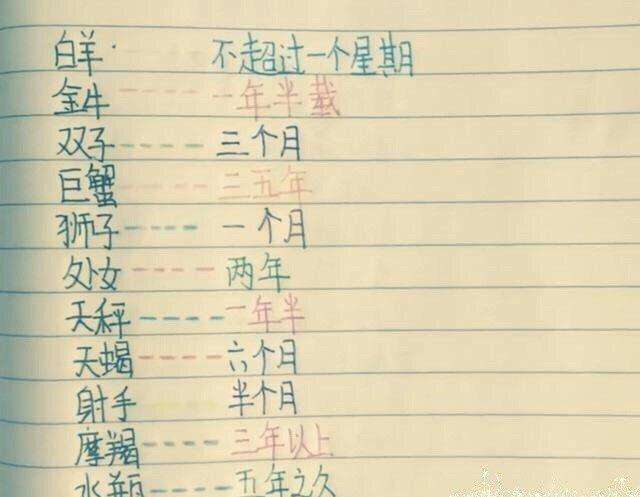 白羊 不超过一个星期
金牛 ---- 一年半载
双子 ---- 三个月
巨蟹 ---- 三五年
狮子 ---- 一个月
处女 ---- 两年
天秤 ---- 一年半
天蝎 ---- 六个月
射手 半个月
摩羯 ---- 三年以上
水瓶 ---- 五年之久